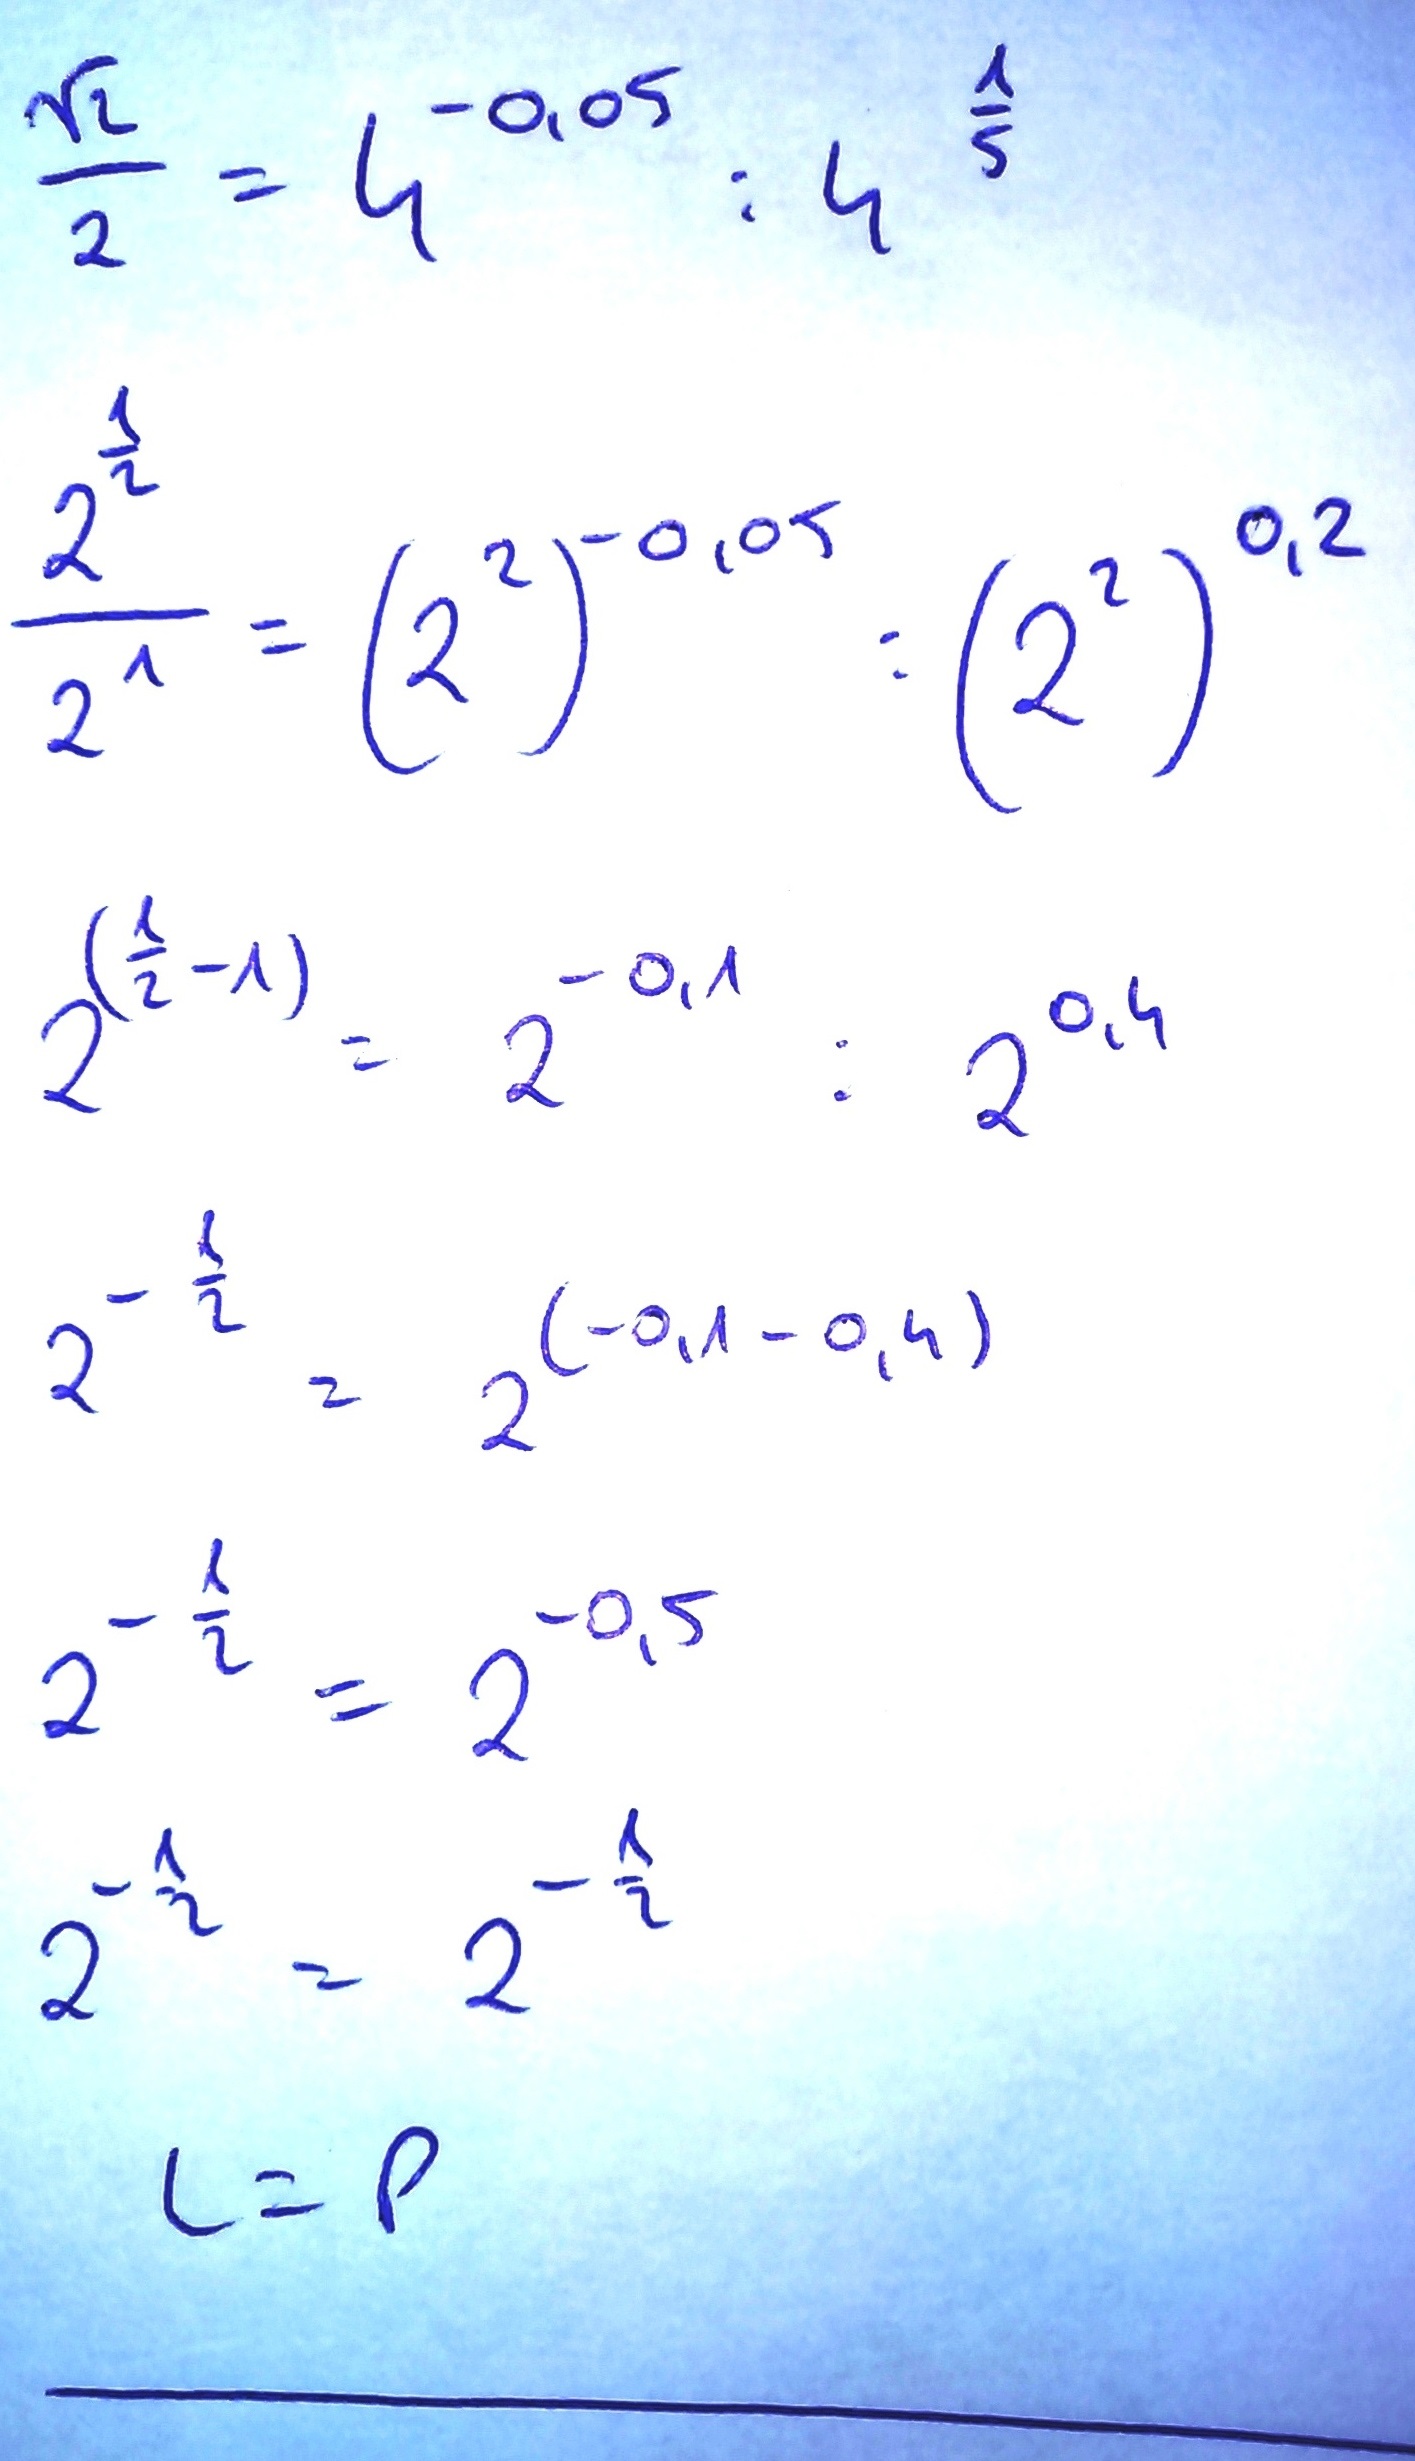 √2/2 = 4^-0,05 : 4^1/5
2^1/2 / 2^1 = (2^2)^-0,05 : (2^2)^0,2
2^(1/2-1) = 2^-0,1 : 2^0,4
2^-1/2 = 2^(-0,1-0,4)
2^-1/2 = 2^-0,5
2^-1/2 = 2^-1/2
L=P